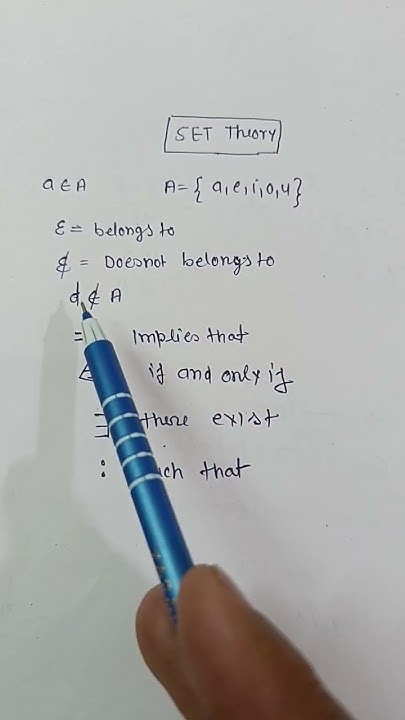 SET Theory
a ∈ A A = { a, e, i, o, u }
∈ = belongs to
∉ = Doesnot belongs to
d ∉ A
Implies that
if and only if
∃ there exist
: that